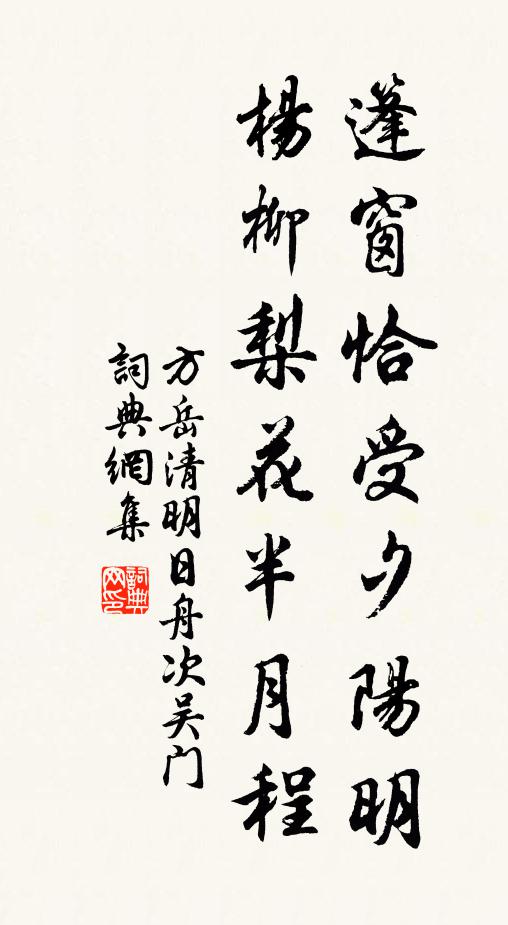 篷窗恰受夕陽明
楊柳梨花半月程
方岳清明日舟次吴门
詞典網集
詞典网印